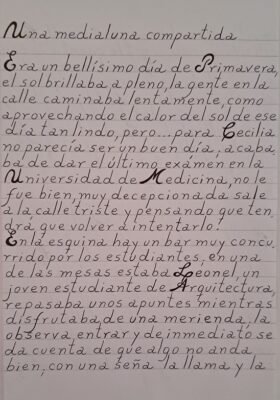 Una medialuna compartida
Era un bellísimo día de Primavera,
el sol brillaba a pleno, la gente en la
calle caminaba lentamente, como
aprovechando el calor del sol de ese
día tan lindo, pero... para Cecilia
no parecía ser un buen día, acaba,
ba de dar el último exámen en la
Universidad de Medicina, no le
fue bien, muy decepcionada sale
a la calle triste y pensando que ten,
drá que volver a intentarlo!
En la esquina hay un bar muy concu,
rrido por los estudiantes, en una
de las mesas estaba Leonel, un
joven estudiante de Arquitectura,
repasaba unos apuntes mientras
disfrutaba de una merienda, la
observa entrar y de inmediato se
da cuenta de que algo no anda
bien, con una seña la llama y la